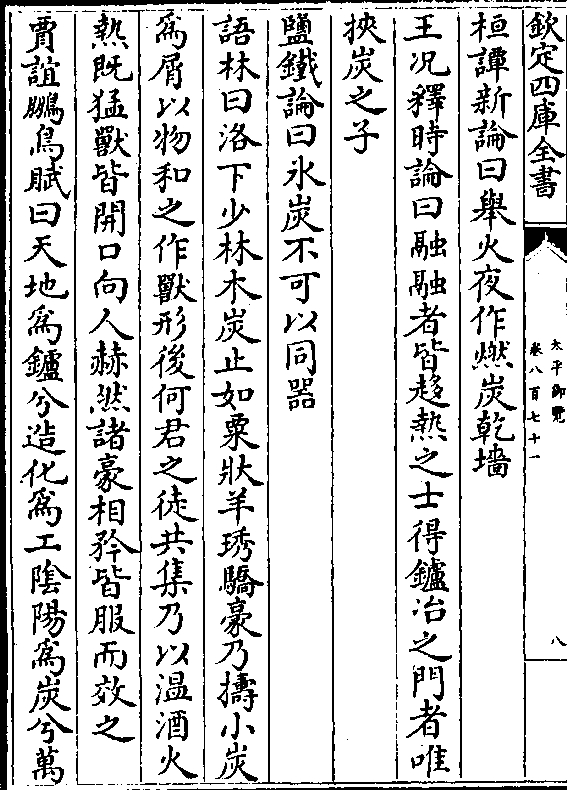 欽定四庫全書
太平御覽
卷八百七十一
八
桓譚新論曰舉火夜作燃炭乾墻
王况釋時論曰融融者皆趍熱之士得鑪冶之門者唯
挾炭之子
鹽鐵論曰氷炭不可以同器
語林曰洛下少林木炭止如粟狀羊琇驕豪乃擣小炭
為屑以物和之作獸形後何君之徒共集乃以温酒火
熱既猛獸皆開口向人赫然諸豪相矜皆服而效之
賈誼鵩鳥賦曰天地為鑪兮造化為工陰陽為炭兮萬